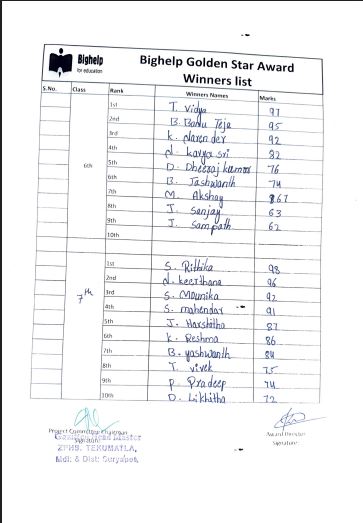 Bighelp
for education
Bighelp Golden Star Award
Winners list
S.No. Class Rank Winners Names Marks
1st T. Vidya 97
2nd B. Banu Teja 95
3rd K. Narender 92
4th d. Kavya sri 82
6th 5th D. Dheeraj kumar 76
6th B. Jashwanth 74
7th M. Akshay 67
8th J. Sanjay 63
9th J. Sampath 62
10th
1st S. Rithika 98
2nd d. keerthana 96
7th 3rd S. Mounika 92
4th S. mahendar 91
5th J. Harshitha 87
6th K. Reshma 86
7th B. yashwanth 84
8th T. vivek 75
9th P. Pradeep 74
10th D. Likhitha 72
Project Committee Chairman
Signature
Gazetted Head Master
ZPHS. TEKUMATLA,
Mdl: & Dist: Suryapet.
Award Director
Signature